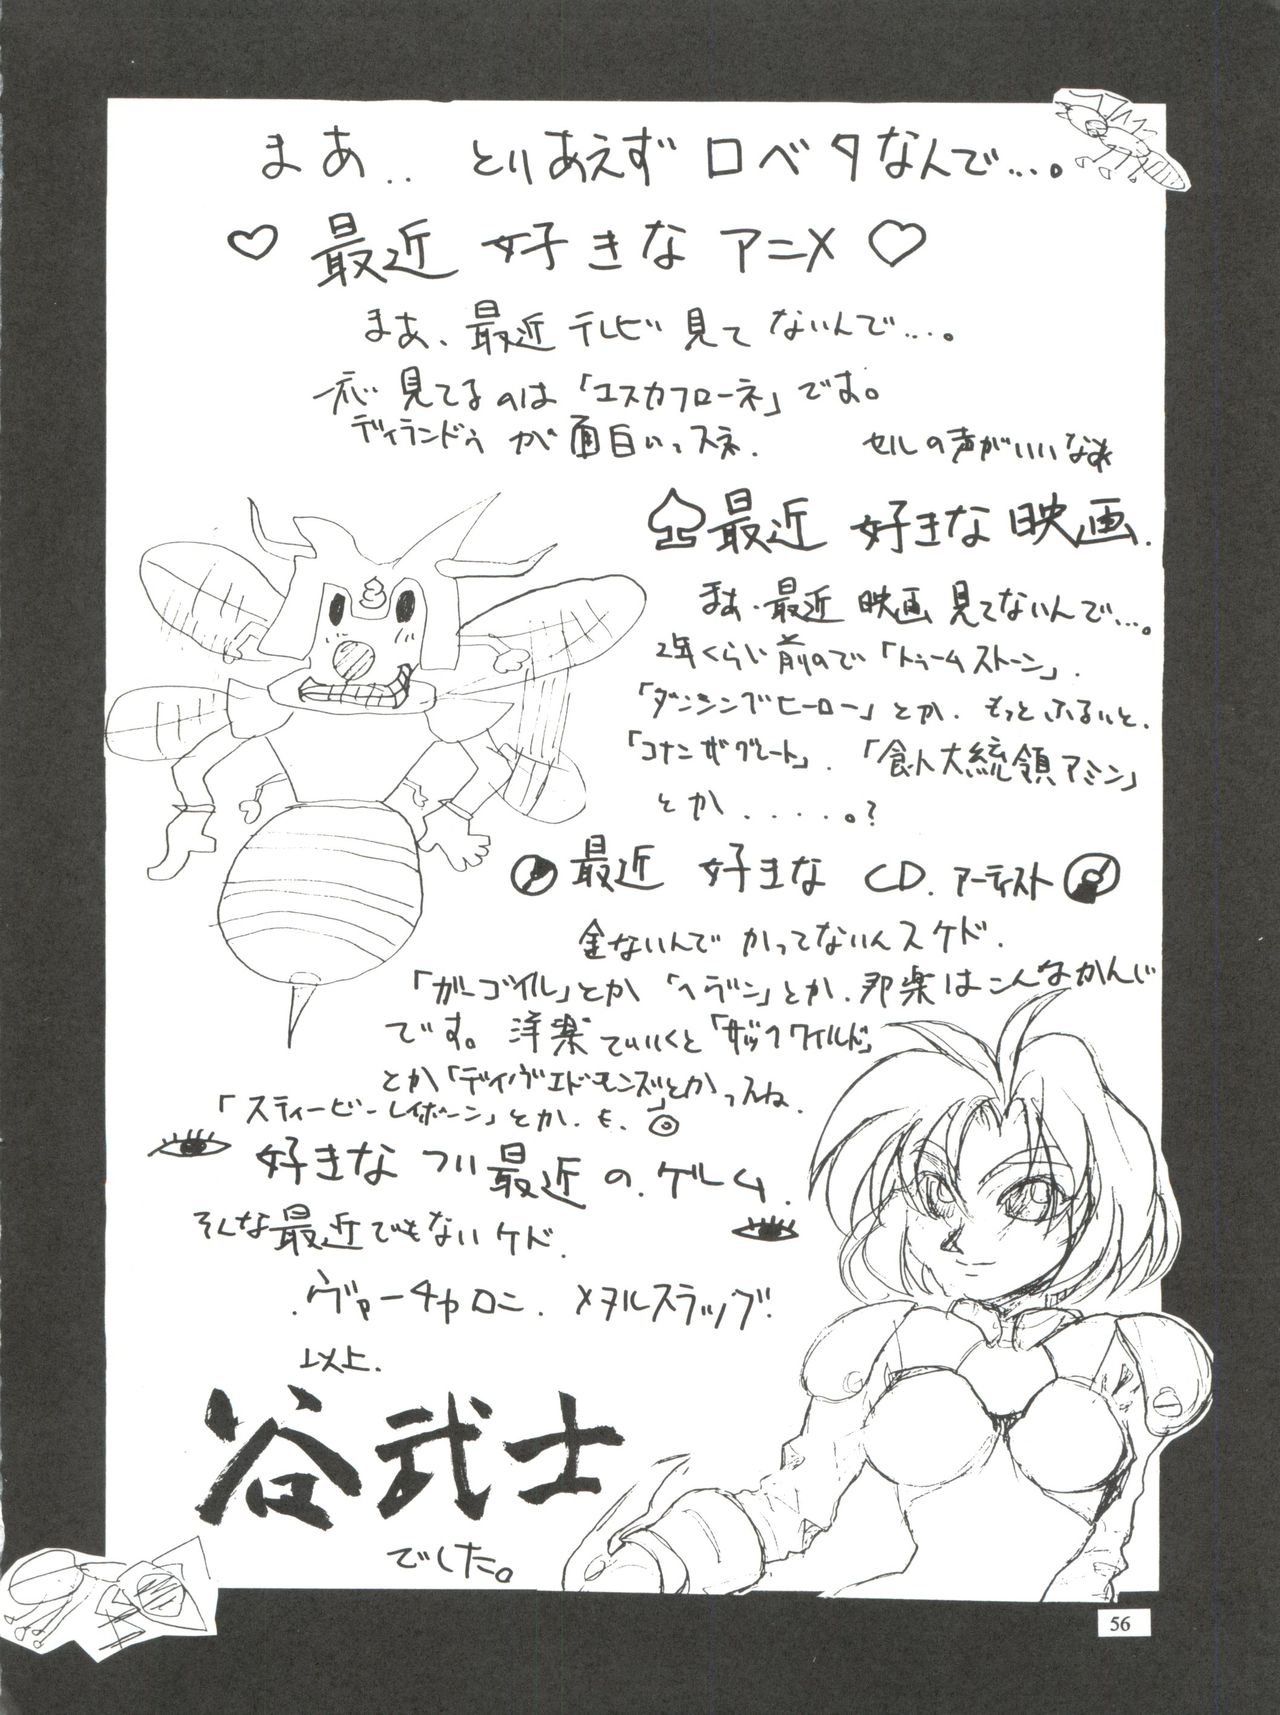 まあ.. とりあえず ロベタなんで...。
♡ 最近 好きな アニメ ♡
まあ、最近 テレビ 見て ないんで...。
一応 見てるのは「エスカフローネ」です。
ディランドゥ が 面白いっスネ.
セルの声がいいなぁ
♤最近 好きな 映画.
まあ.最近 映画 見てないんで...。
2年くらい前ので「トゥームストーン」.
「ダンシングヒーロー」とか. もっとふるいと.
「コナン ザ グレート」.「食人大統領アミン」
とか .....。?
最近 好きな CD.アーティスト
金ないんで かってないんスケド.
「ガーゴイル」とか 「ヘヴン」とか.邦楽はこんなかんじ
です。洋楽でいくと「ザックワイルド」
とか「デイヴエドモンズ」とかっスね.
「スティービーレイボーン」とか.も.
好きな つい最近 の.ゲーム.
そんな最近でもないケド.
.ヴァーチャロン. メタルスラッグ.
以上.
谷武士
でした。
56